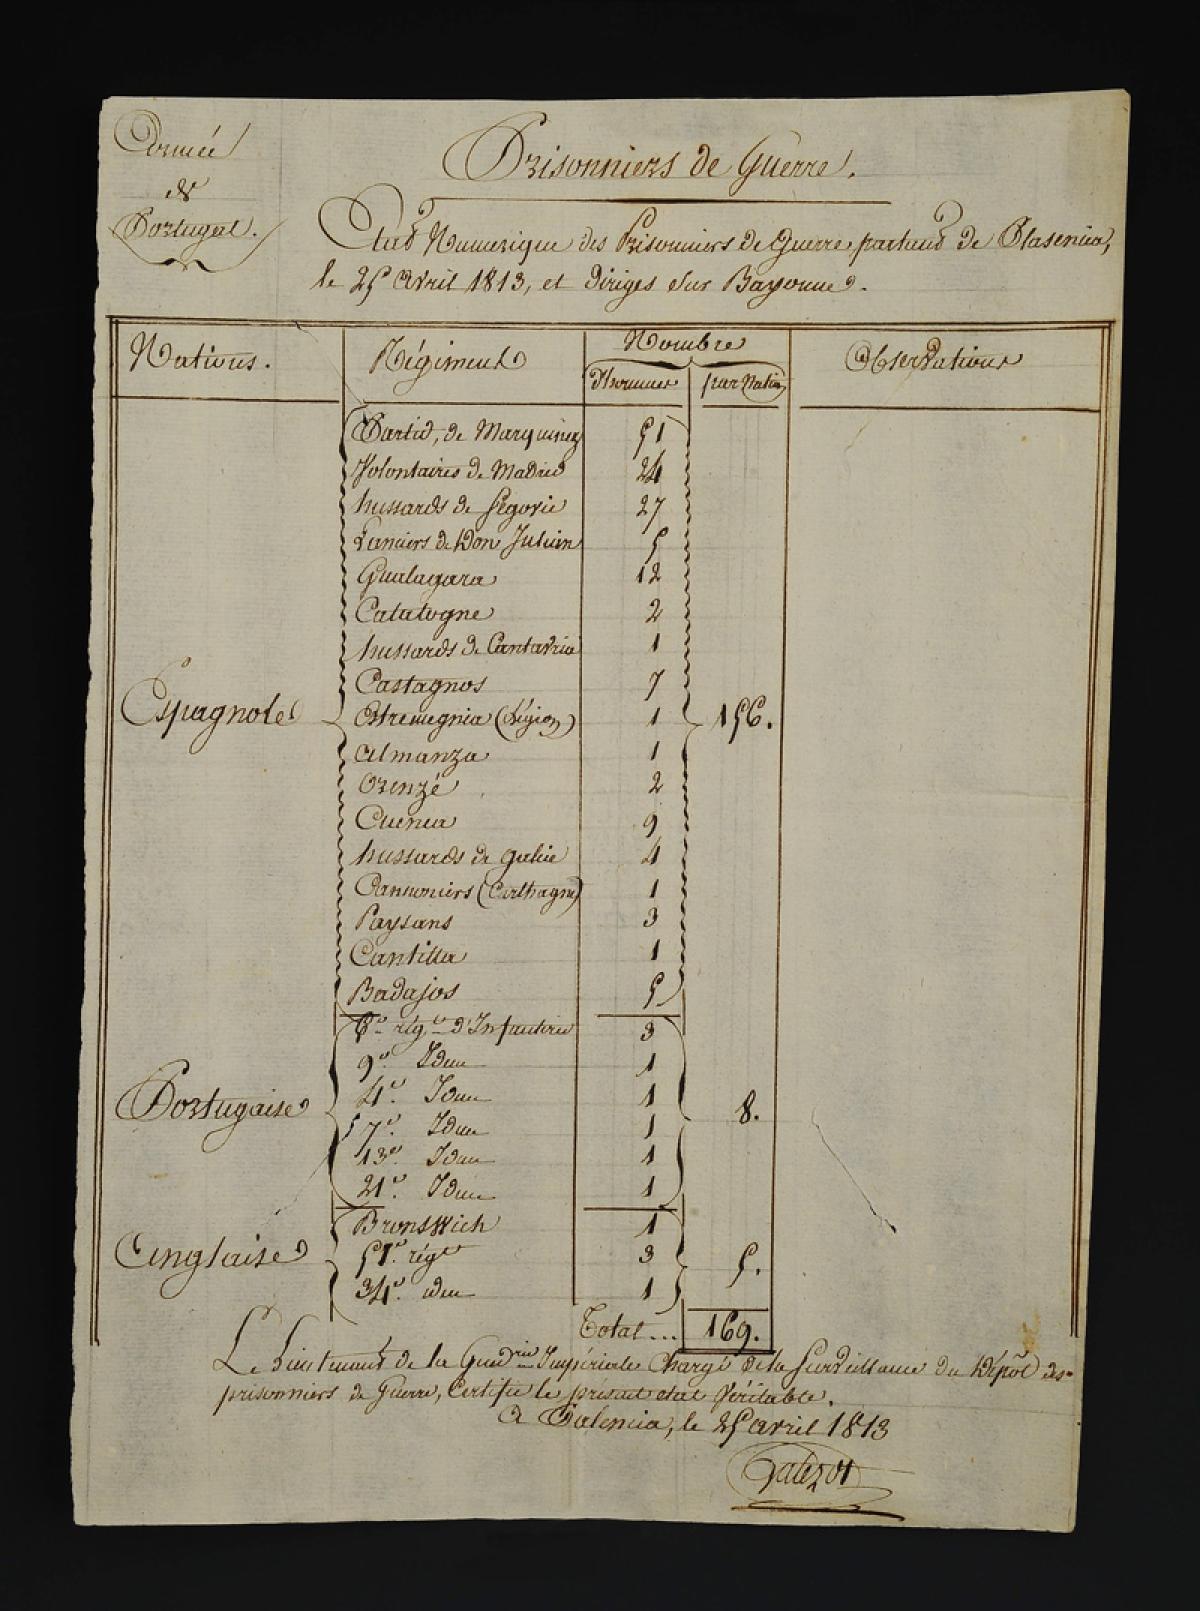 Armée
de
Portugal.
Prisonniers de Guerre.
Etat Numerique des Prisonniers de Guerre partant de Plasencia,
le 25 Avril 1813, et Dirigés sur Bayonne.
Nations. Régiment Nombre Observations
d'hommes par Nation
Partid, de Marquinez 51
Volontaires de Madrid 24
hussards de Ségovie 27
Lanciers de Don Julien 5
Gualagara 12
Catalogne 2
hussards de Cantavria 1
Castagnos 7
Espagnole Estremegnia (Légion) 1 156.
Almanza 1
Orenzé 2
Cuenca 9
hussards de Galice 4
Cannoniers (Carthagne) 1
Paysans 3
Cantilla 1
Badajos 5
8e. régt. d'Infanterie 3
9e. Idem 1
4e. Idem 1
Portugaise 7e. Idem 1 8.
13e. Idem 1
21e. Idem 1
Brunswich 1
Anglaise 51e. régt 3 5.
34e. idem 1
Total... 169.
Le Lieutenant de la Gendrie Impériale Chargé de la Surveillance du Dépôt des
prisonniers de Guerre, Certifie le présent etat Véritable.
A Palencia, le 25 avril 1813